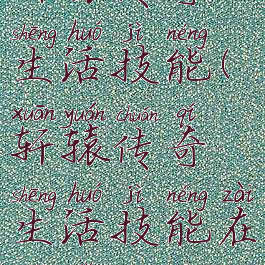 shēng huó jì néng
生活技能(
xuān yuán chuán qí
轩辕传奇
shēng huó jì néng zài
生活技能在